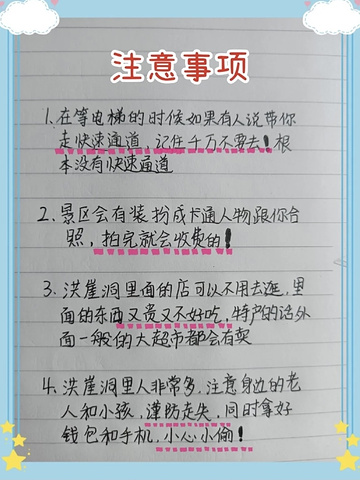 注意事项
1.在等电梯的时候如果有人说带你
走快速通道,记住千万不要去!根
本没有快速通道
2.景区会有装扮成卡通人物跟你合
照,拍完就会收费的!
3.洪崖洞里面的店可以不用去逛,里
面的东西又贵又不好吃,特产的话外
面一般的大超市都会有卖
4.洪崖洞里人非常多,注意身边的老
人和小孩,谨防走失,同时拿好
钱包和手机,小心小偷!